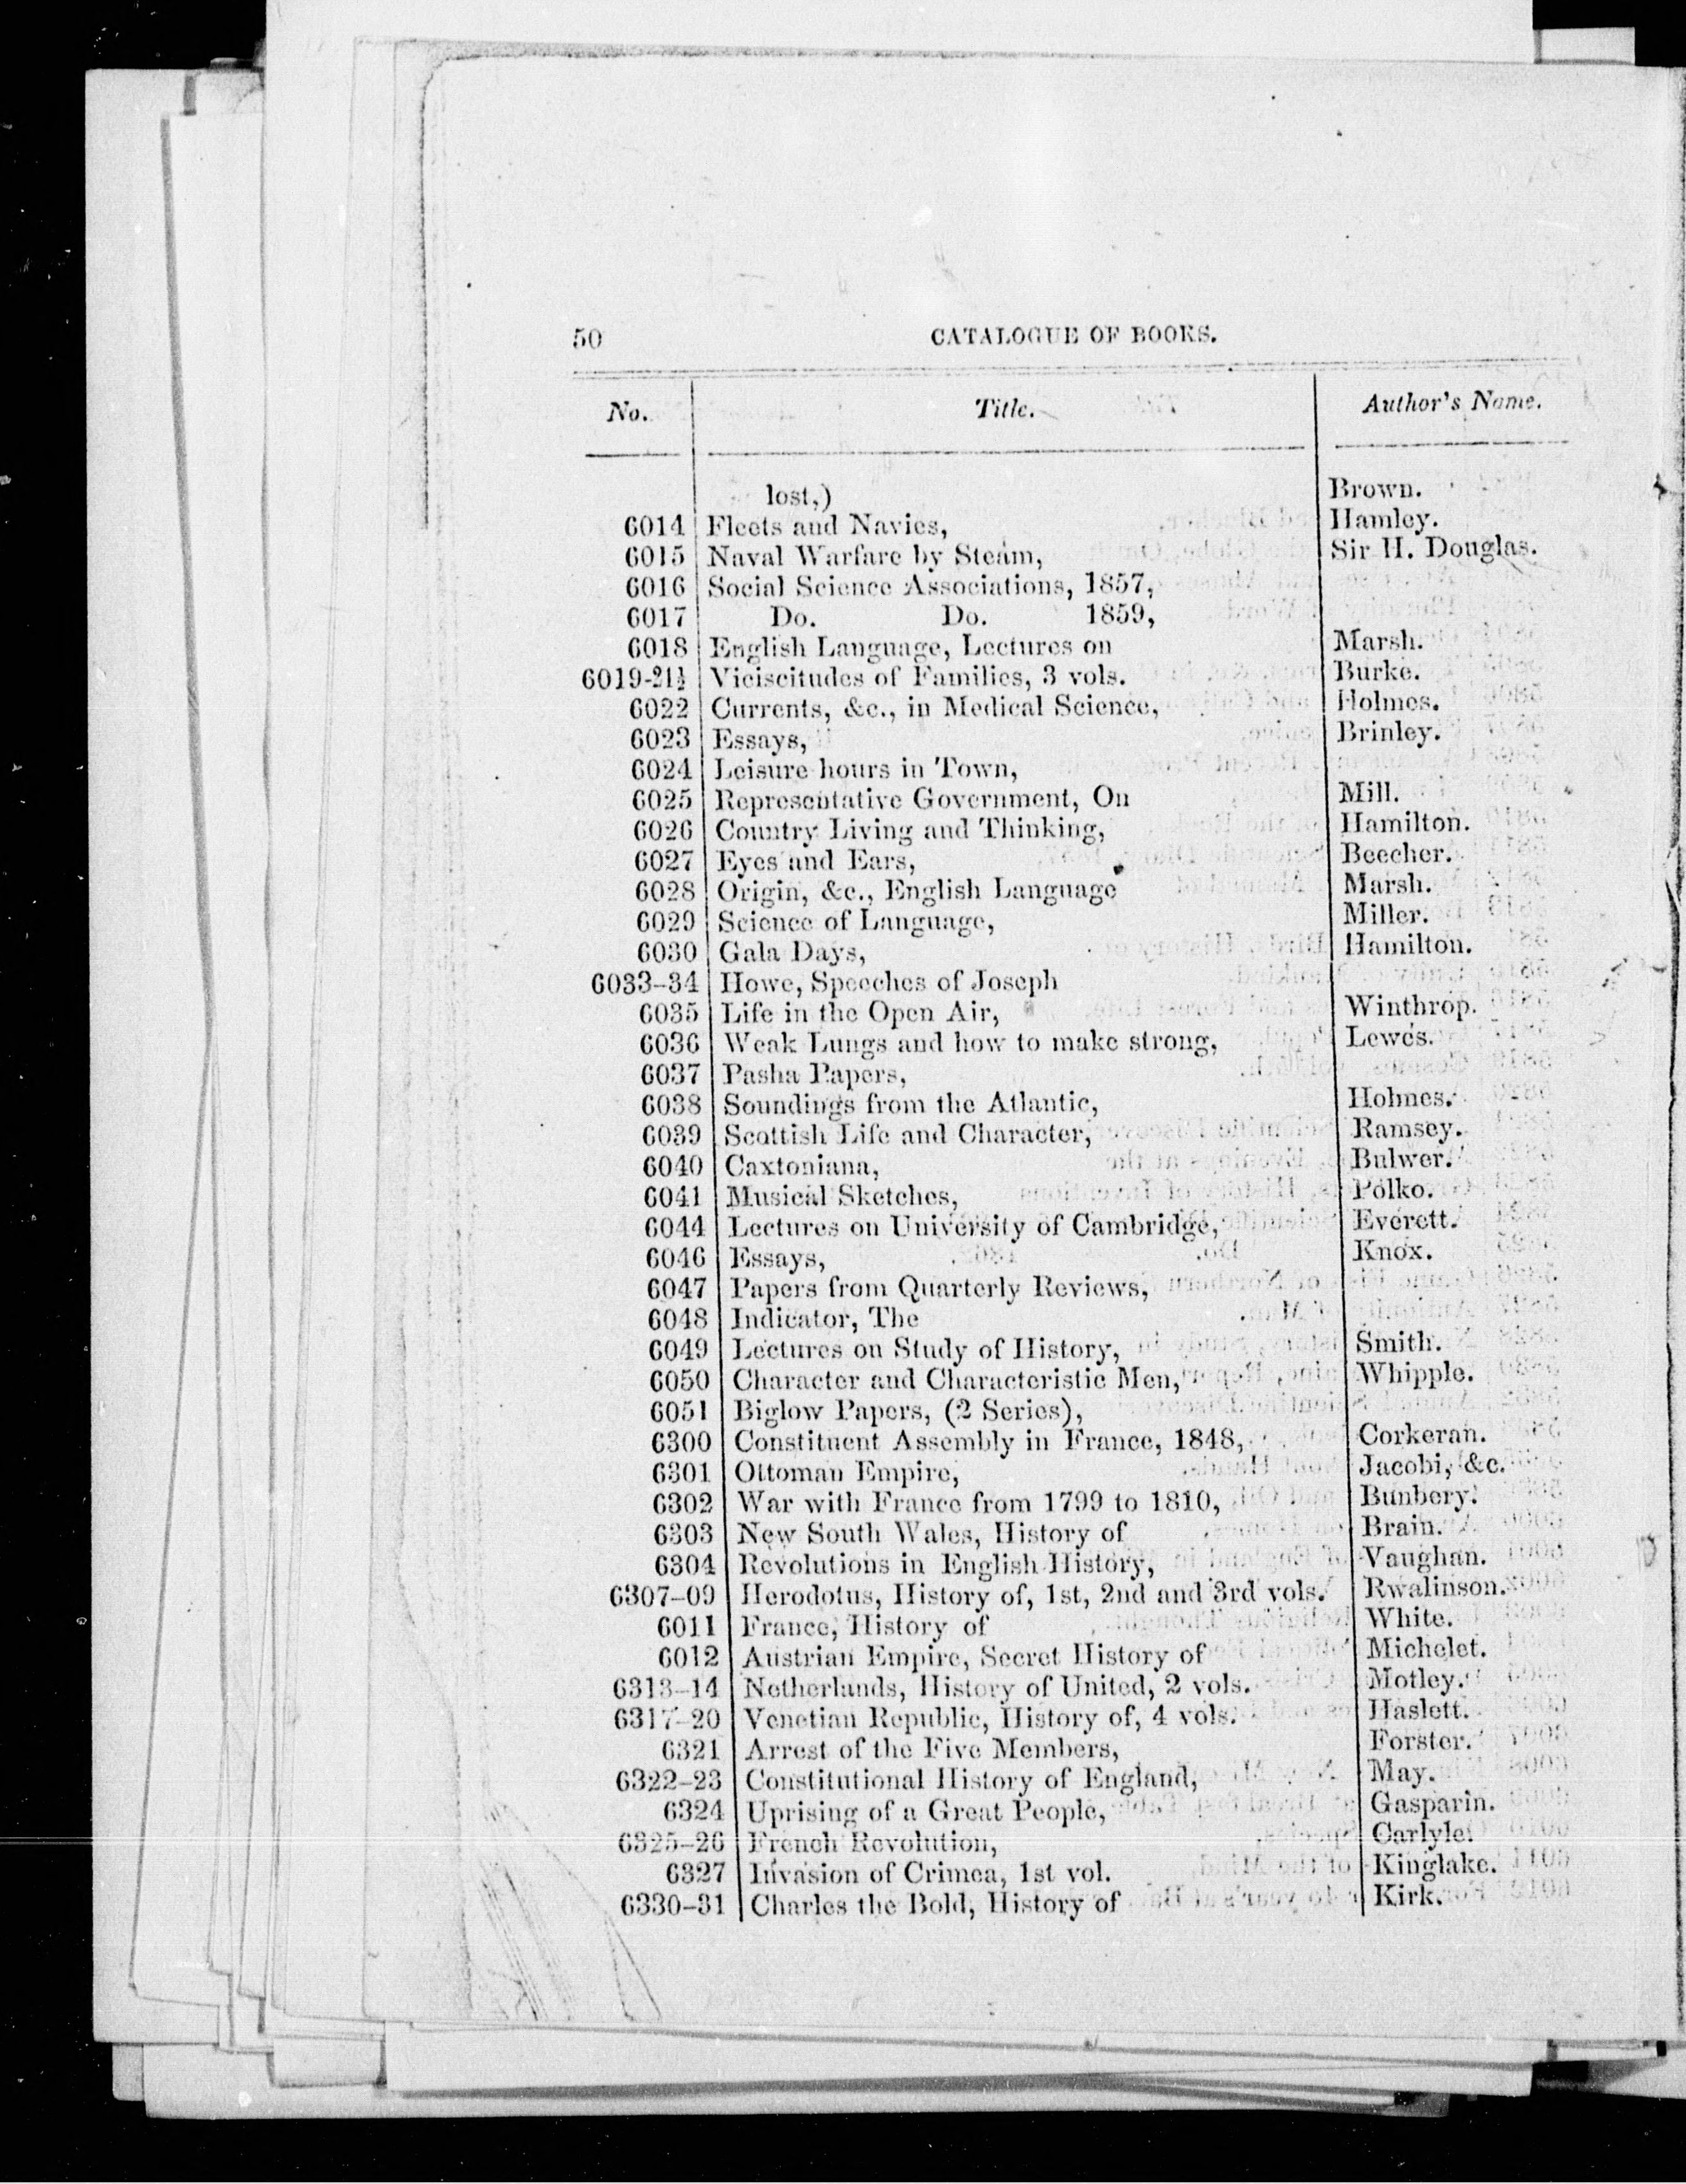 50 CATALOGUE OF BOOKS.
No. Title. Author's Name.
lost,) Brown.
6014 Fleets and Navies, Hamley.
6015 Naval Warfare by Steam, Sir H. Douglas.
6016 Social Science Associations, 1857,
6017 Do. Do. 1859,
6018 English Language, Lectures on Marsh.
6019-21½ Viciscitudes of Families, 3 vols. Burke.
6022 Currents, &c., in Medical Science, Holmes.
6023 Essays, Brinley.
6024 Leisure hours in Town,
6025 Representative Government, On Mill.
6026 Country Living and Thinking, Hamilton.
6027 Eyes and Ears, Beecher.
6028 Origin, &c., English Language Marsh.
6029 Science of Language, Miller.
6030 Gala Days, Hamilton.
6033-34 Howe, Speeches of Joseph
6035 Life in the Open Air, Winthrop.
6036 Weak Lungs and how to make strong, Lewes.
6037 Pasha Papers,
6038 Soundings from the Atlantic, Holmes.
6039 Scottish Life and Character, Ramsey.
6040 Caxtoniana, Bulwer.
6041 Musical Sketches, Polko.
6044 Lectures on University of Cambridge, Everett.
6046 Essays, Knox.
6047 Papers from Quarterly Reviews,
6048 Indicator, The
6049 Lectures on Study of History, Smith.
6050 Character and Characteristic Men, Whipple.
6051 Biglow Papers, (2 Series),
6300 Constituent Assembly in France, 1848, Corkeran.
6301 Ottoman Empire, Jacobi, &c.
6302 War with France from 1799 to 1810, Bunbery.
6303 New South Wales, History of Brain.
6304 Revolutions in English History, Vaughan.
6307-09 Herodotus, History of, 1st, 2nd and 3rd vols. Rwalinson.
6011 France, History of White.
6012 Austrian Empire, Secret History of Michelet.
6313-14 Netherlands, History of United, 2 vols. Motley.
6317-20 Venetian Republic, History of, 4 vols. Haslett.
6321 Arrest of the Five Members, Forster.
6322-23 Constitutional History of England, May.
6324 Uprising of a Great People, Gasparin.
6325-26 French Revolution, Carlyle.
6327 Invasion of Crimea, 1st vol. Kinglake.
6330-31 Charles the Bold, History of Kirk.